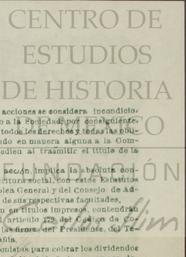 CENTRO DE
ESTUDIOS
DE HISTORIA
acciones se considera incondicio-
o a la Sociedad; por consiguiente,
todos los derechos y todas las obli-
ndo en manera alguna a la Com-
odien al trasmitir el título de la
acción implica la absoluta con-
critura social, con estos Estatutos
blea General y del Consejo de Ad-
de sus respectivas facultades,
n en títulos impresos, contendrán
l artículo 178 del Código de Co-
las firmas del Presidente, del Te-
añía,
onistas para cobrar los dividendos